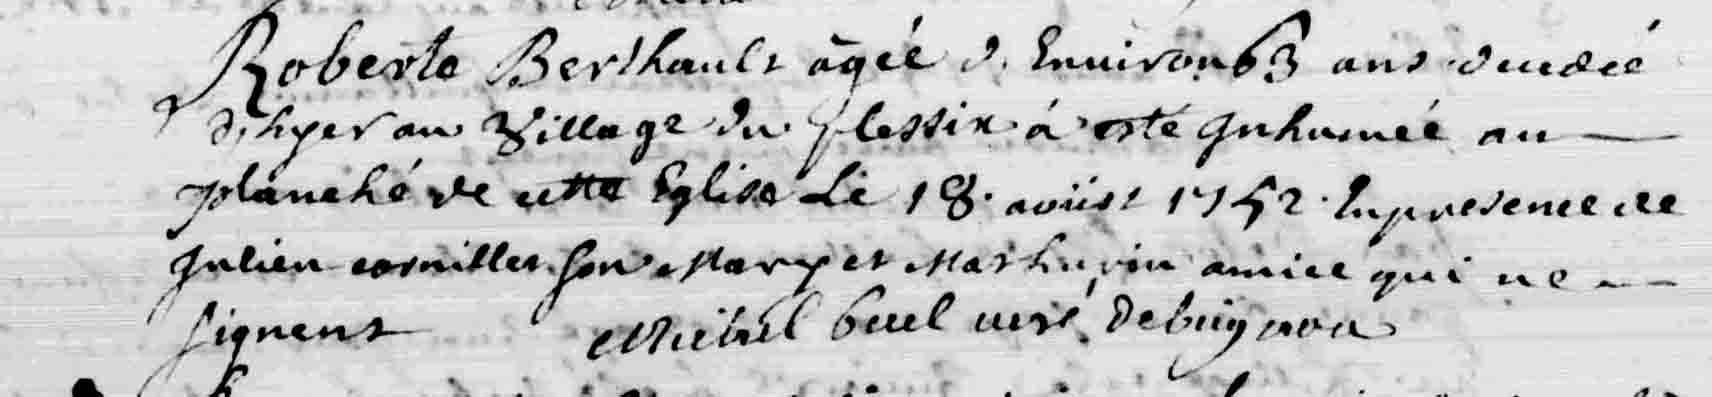 Roberte Berthault âgée d. Enuiron 63 ans décedée
d'hyer au Village du plessix à esté Inhumée au
planché de cette Eglise Le 18. aoüst 1752. En presence de
Julien cornillet son Mary et Mathurin amice qui ne
signent Michel buel curé